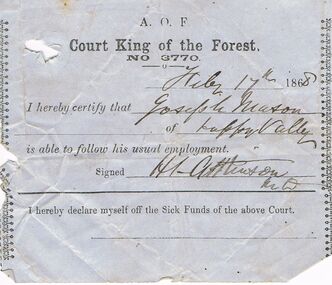 A. O. F
Court King of the Forest.
NO 3770.
Feby 17th 1868
I hereby certify that Joseph Mason
of Happy Valley
is able to follow his usual employment.
Signed H. Atkinson
M D
I hereby declare myself off the Sick Funds of the above Court.